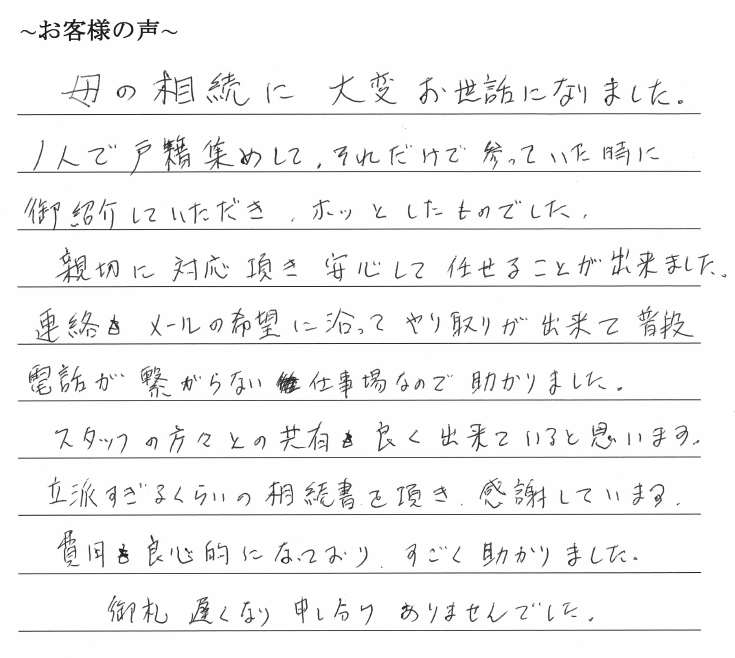 ~お客様の声~
母の相続に 大変 お世話になりました。
1人で戸籍集めして、それだけで参っていた時に
御紹介していただき、ホッとしたものでした。
親切に対応頂き安心して任せることが出来ました。
連絡も メールの希望に沿って やり取りが出来て普段
電話が繋がらない仕事場なので助かりました。
スタッフの方々との共有も良く出来ていると思います。
立派すぎるくらいの相続書を頂き、感謝しています。
費用も良心的になっており、すごく助かりました。
御札 遅くなり 申し分け ありませんでした。